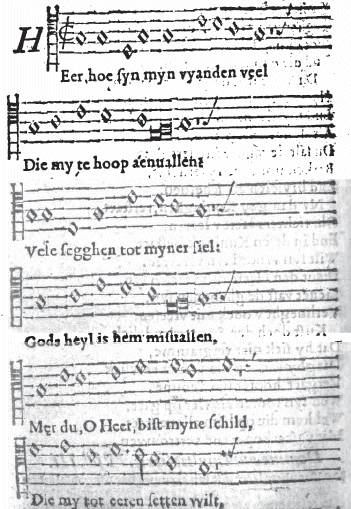 HEer, hoe syn myn vyanden veel
Die my te hoop aenuallen:
Vele segghen tot myner siel:
Gods heyl is hem misuallen.
Mer du, O Heer, bist myne schild,
Die my tot eeren setten wilt,